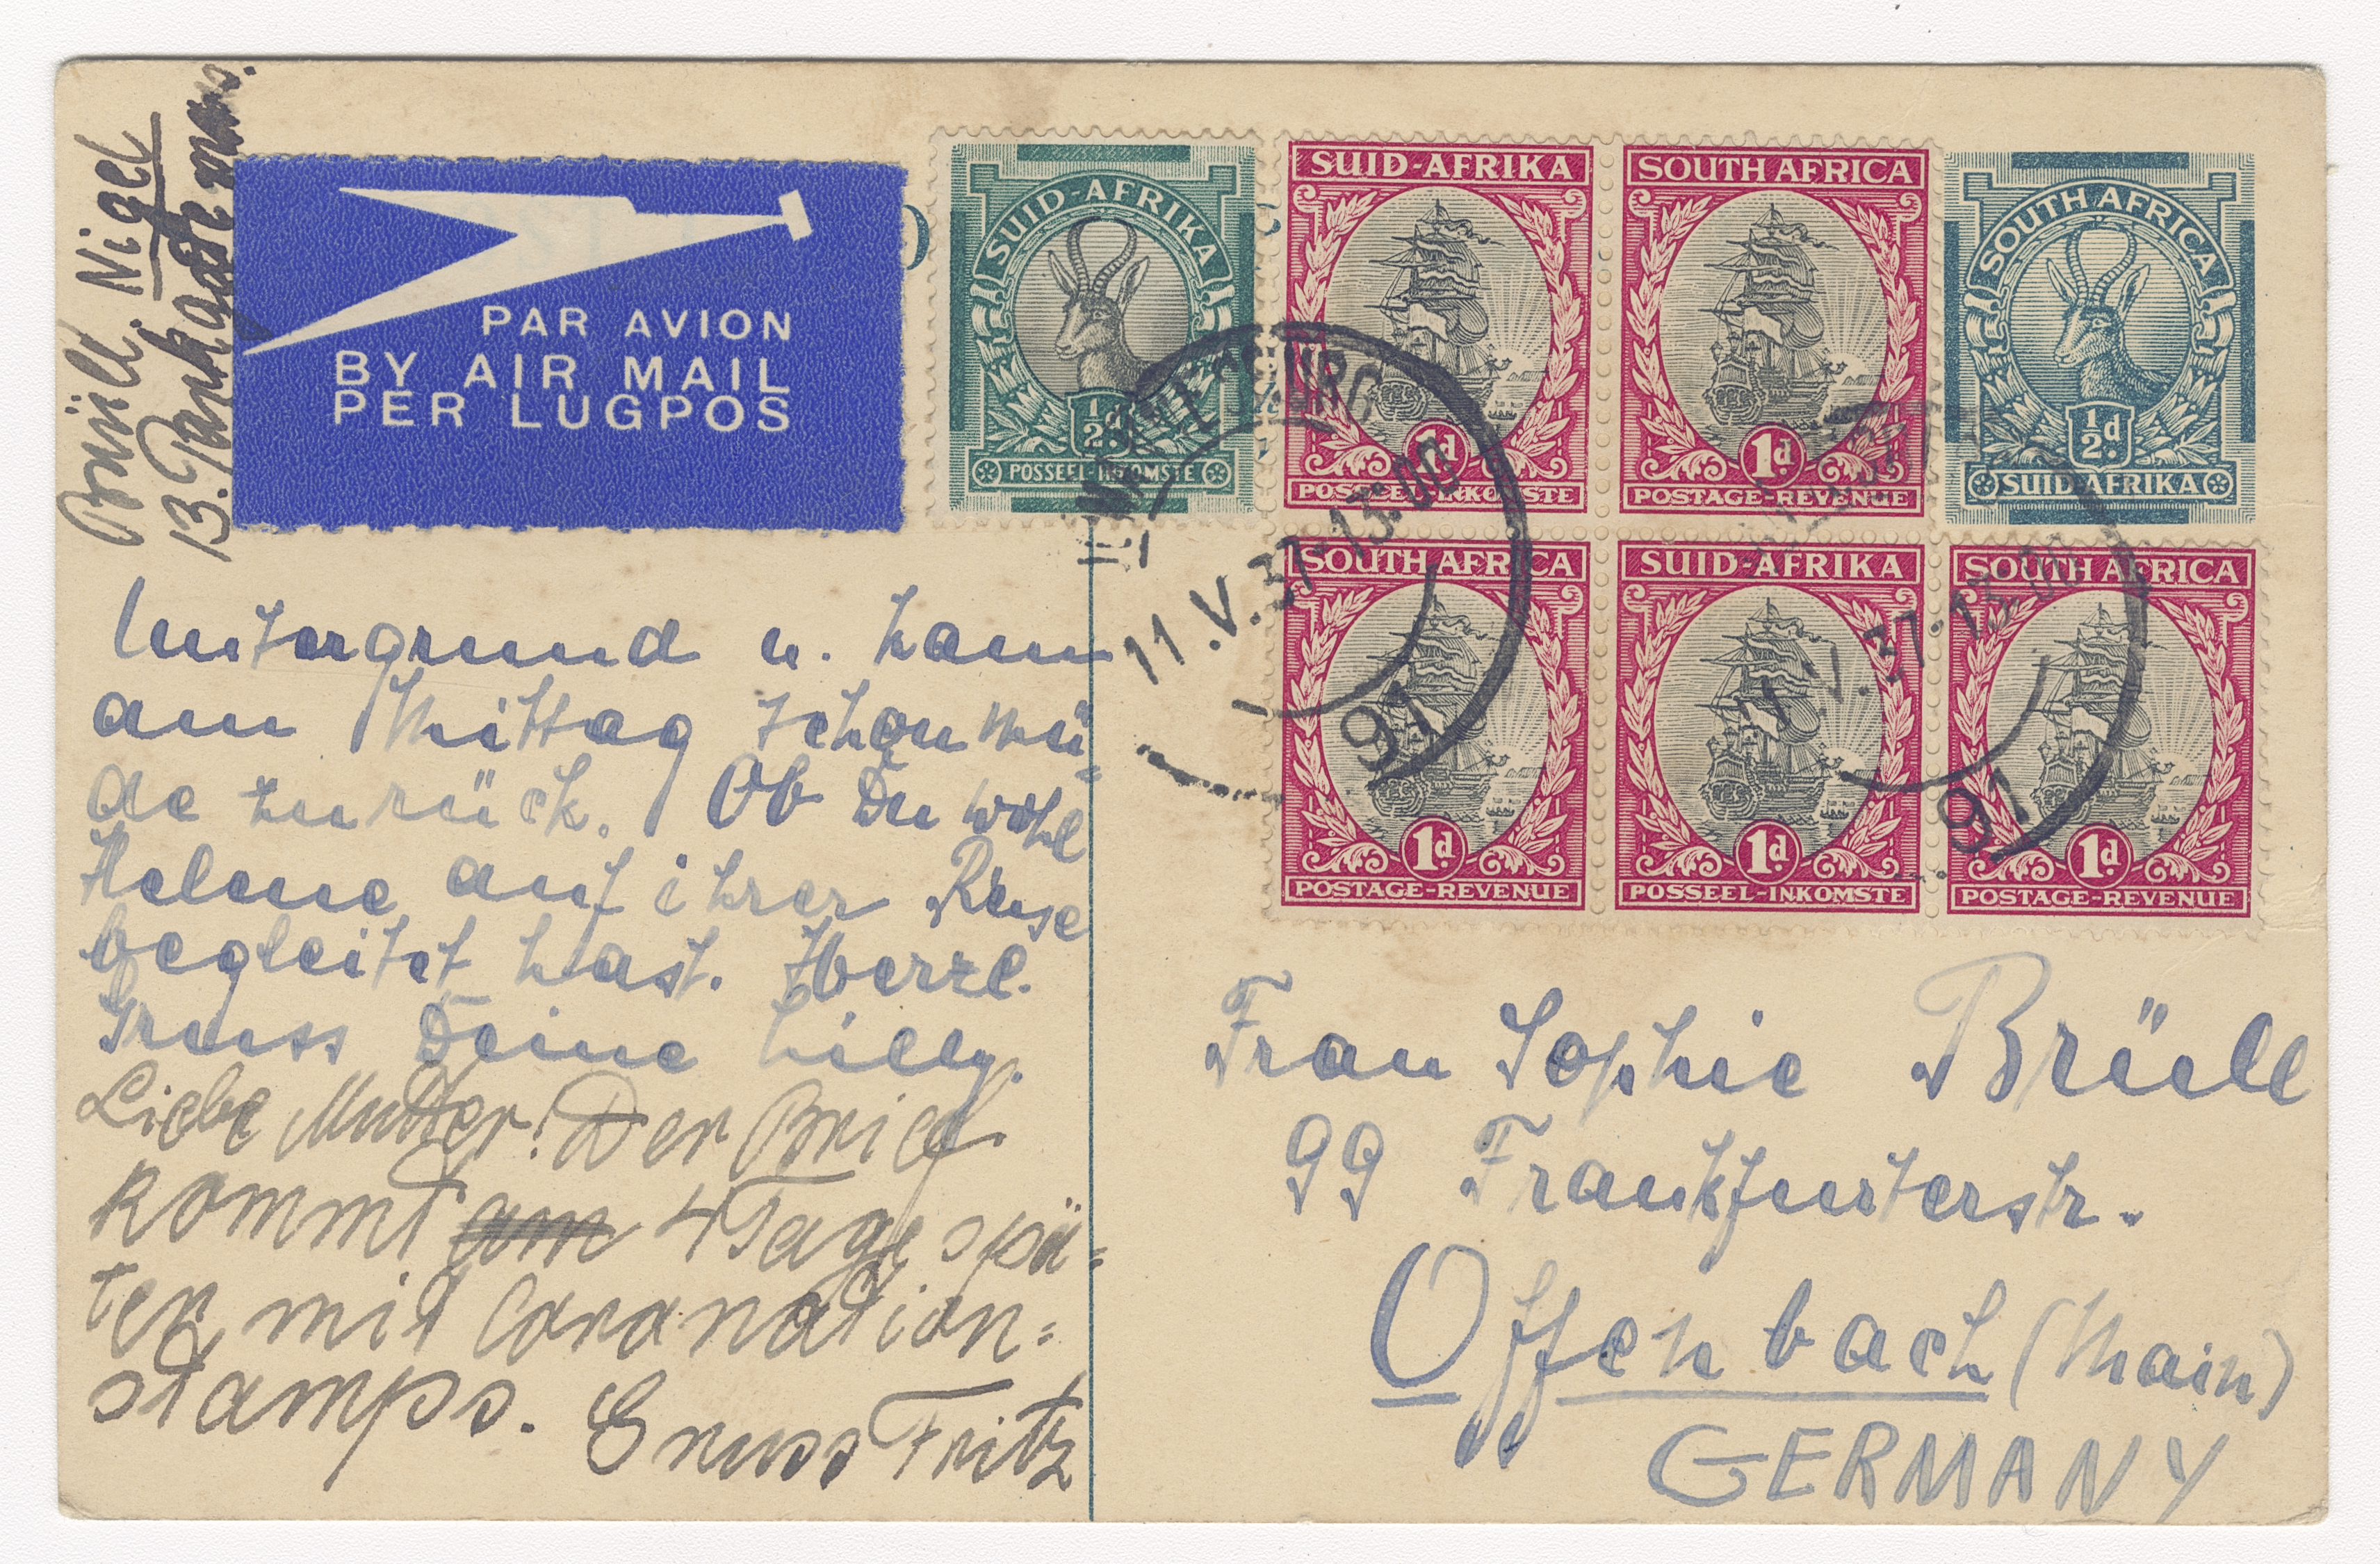 Brüll. Nigel
13. Parkadh mans.
PAR AVION
BY AIR MAIL
PER LUGPOS
SUID-AFRIKA
½d.
POSSEEL-INKOMSTE
SUID-AFRIKA
1d.
POSSEEL-INKOMSTE
SOUTH AFRICA
1d.
POSTAGE-REVENUE
SOUTH AFRICA
½d.
SUID AFRIKA
SOUTH AFRICA
1d.
POSTAGE-REVENUE
SUID-AFRIKA
1d.
POSSEEL-INKOMSTE
SOUTH AFRICA
1d.
POSTAGE-REVENUE
11.V.37-13:00
97
V.37-13:00
97
Untergrund u. kam
am Mittag schon mü-
de zurück. Ob Du wohl
Helene auf ihrer Reise
begleitet hast. Herzl.
Gruss Deine Lilly.
Liebe Mutter! Der Brief
kommt am 4 Tage spä=
ter mit Coronation=
stamps. Gruss Fritz
Frau Sophie Brüll
99 Frankfurterstr.
Offenbach (Main)
GERMANY